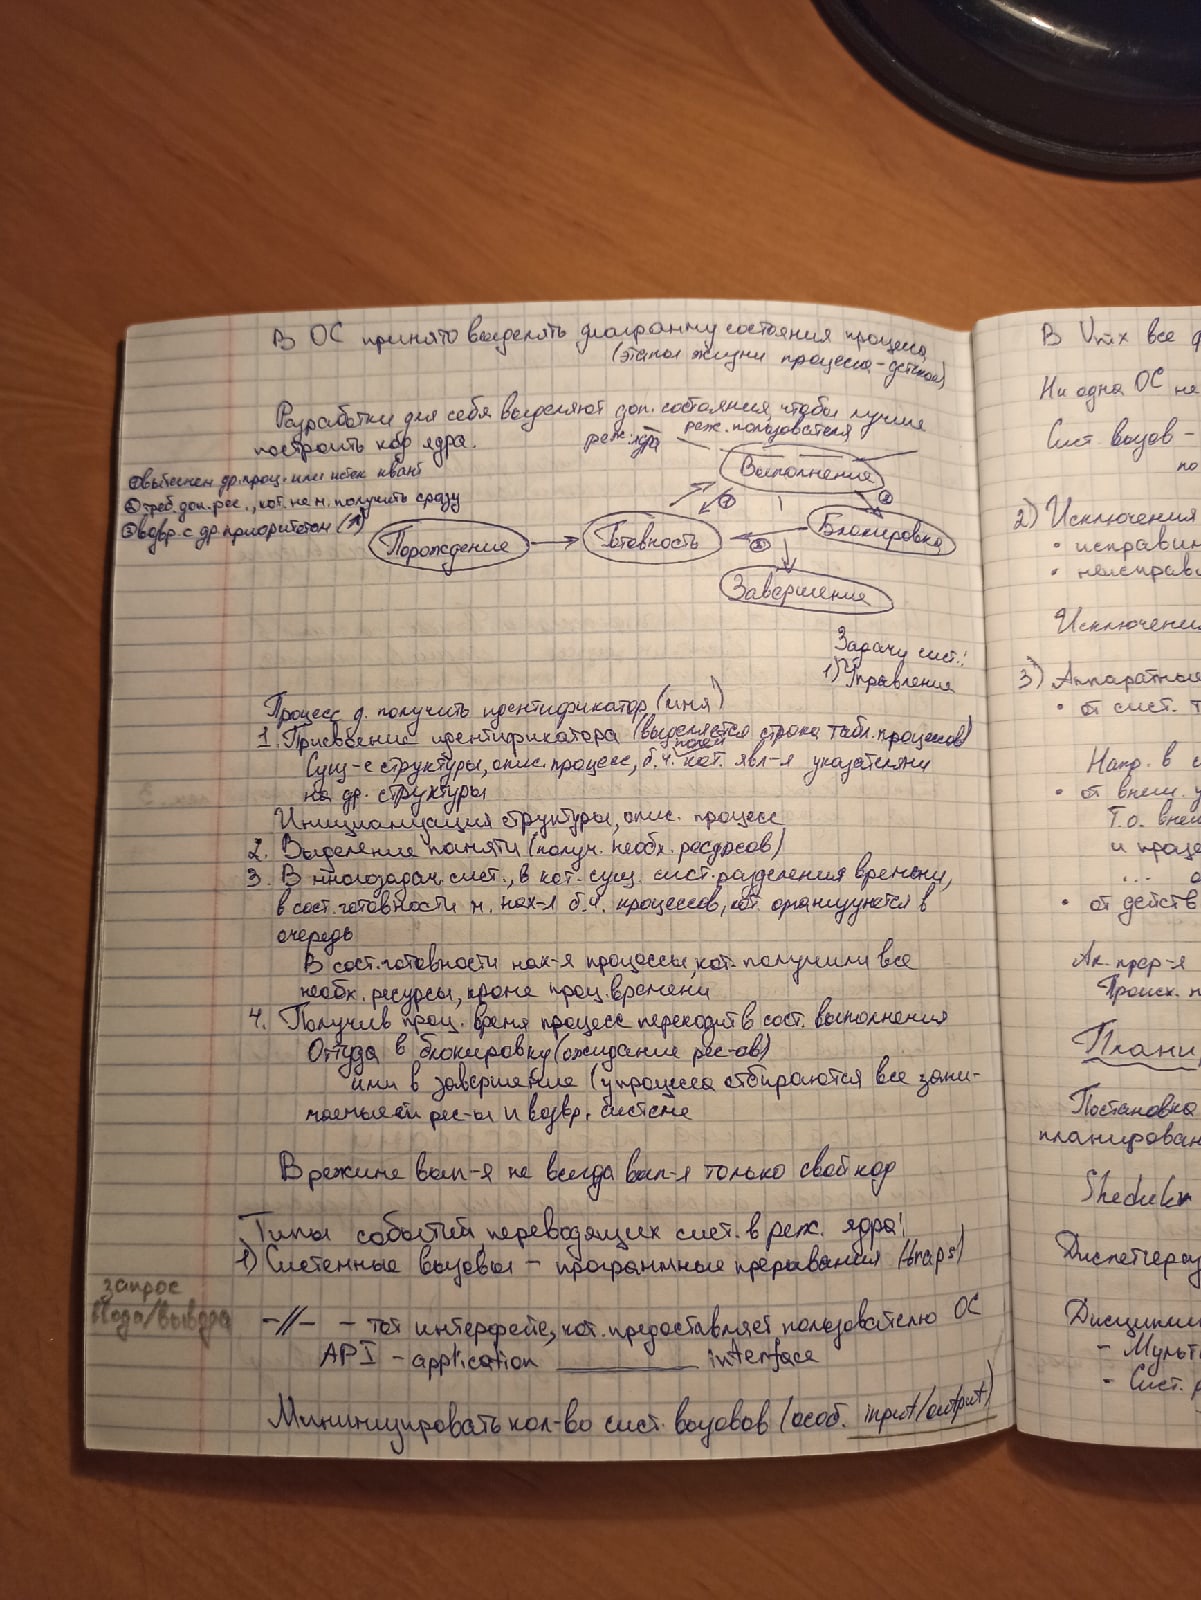 В ОС принято выделять диаграмму состояния процесса
(этапы жизни процесса -
Разработки для себя выделяют доп. состояния, чтобы лучше
построить код ядра.
реж. ядра
реж. пользователя
① вытеснен др. проц. или истек квант
② треб. доп. рес., кот. не м. получить сразу
③ возвр. с др. приоритетом (↗)
Выполнение
①
②
Порождение
Готовность
③
Блокировка
Завершение
Задачи сист.:
1) Управления
Процесс д. получить идентификатор (имя)
1. Присвоение идентификатора (выделяется строка табл. процессов)
Сущ-е структуры, опис. процесс, б.ч. полей кот. явл-я указателями
на др. структуры
Инициализация структуры, опис. процесс
2. Выделение памяти (получ. необх. ресурсов)
3. В многозадач. сист., в кот. сущ. сист. разделения времени,
в сост. готовности м. нах-я б.ч. процессов, кот. организуются в
очередь
В сост. готовности нах-я процессы, кот. получили все
необх. ресурсы, кроме проц. времени
4. Получив проц. время процесс переходит в сост. выполнения
Оттуда в блокировку (ожидание рес-ов)
или в завершение (у процесса отбираются все зани-
маемые рес-ы и возвр. системе
В режиме вып-я не всегда вып-я только свой код
Типы событий переводящих сист. в реж. ядра:
1) Системные вызовы - программные прерывания (traps)
запрос
ввода/вывода
-//- - тот интерфейс, кот. предоставляет пользователю ОС
API - application ______ interface
Минимизировать кол-во сист. вызовов (особ. input/output)
В Unix все
Ни одна ОС не
Сист. вызов -
по
2) Исключения
• исправим
• неисправ
Исключени
3) Аппаратные
• от сист. т
Напр. в с
• от внеш. у
Т.о. внеш
и проце
...
• от действ
Ап. прер-я
Происх. н
Плани
Постановка
планирован
Sheduler
Диспетчериз
Дисциплин
- Мульт
- Сист. р